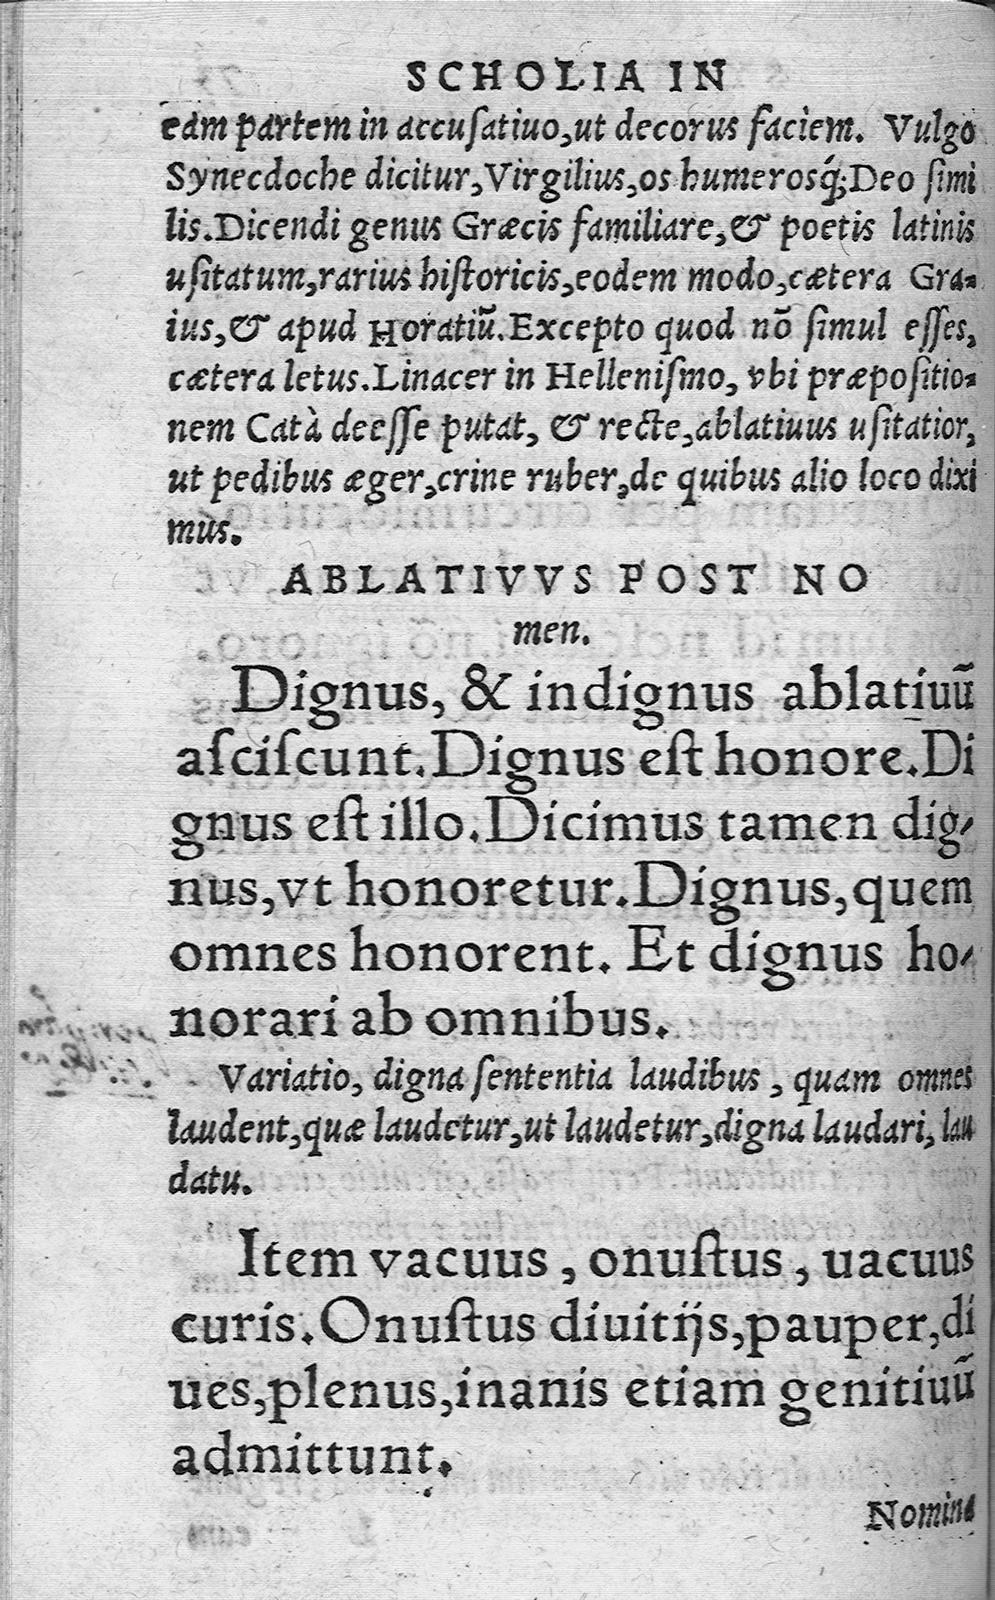 SCHOLIA IN
eam partem in accuſatiuo,ut decorus faciem. Vulgo
Synecdoche dicitur,Virgilius,os humerosq́;Deo ſimi
lis.Dicendi genus Græcis familiare,& poetis latinis
uſitatum,rarius hiſtoricis,eodem modo,cætera Gra-
ius,& apud Horatiũ.Excepto quod nõ ſimul eſſes,
cætera letus.Linacer in Helleniſmo, vbi præpoſitio-
nem Catà deeſſe putat, & recte,ablatiuus uſitatior,
ut pedibus æger,crine ruber,de quibus alio loco dixi
mus.
ABLATIVVS POST NO
men.
Dignus, & indignus ablatiuũ
aſciſcunt.Dignus eſt honore.Di
gnus eſt illo.Dicimus tamen dig-
nus,vt honoretur.Dignus,quem
omnes honorent. Et dignus ho-
norari ab omnibus.
Variatio, digna ſententia laudibus, quam omnes
laudent,quæ laudetur,ut laudetur,digna laudari, lau
datu.
Item vacuus, onuſtus, uacuus
curis.Onuſtus diuitijs,pauper,di
ues,plenus,inanis etiam genitiuũ
admittunt.
Nomina